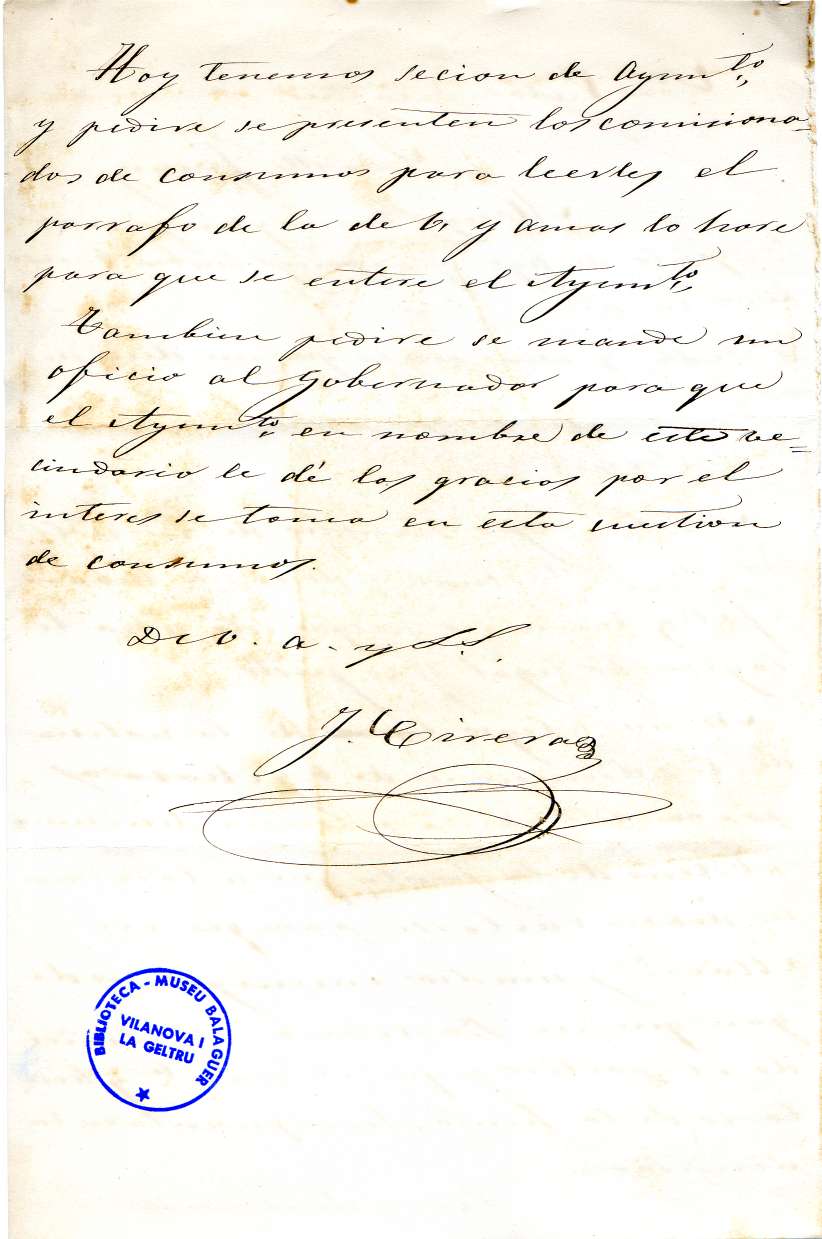 Hoy tenemos secion de Ayunto,
y pedire se presenten los comisiona-
dos de consumos para leerles el
parrafo de la de V, y amas lo hare
para que se entere el Ayunto,
Tambien pedire se mande un
oficio al Gobernador para que
el Ayunto, en nombre de este ve=
cindario le dé las gracias por el
interes se toma en esta cuestion
de consumos.
De V. a. y S.S.
J. Cirera
BIBLIOTECA - MUSEU BALAGUER
VILANOVA I
LA GELTRU